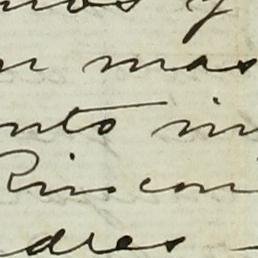 mos y
n mas
nto in
Rincon
adres